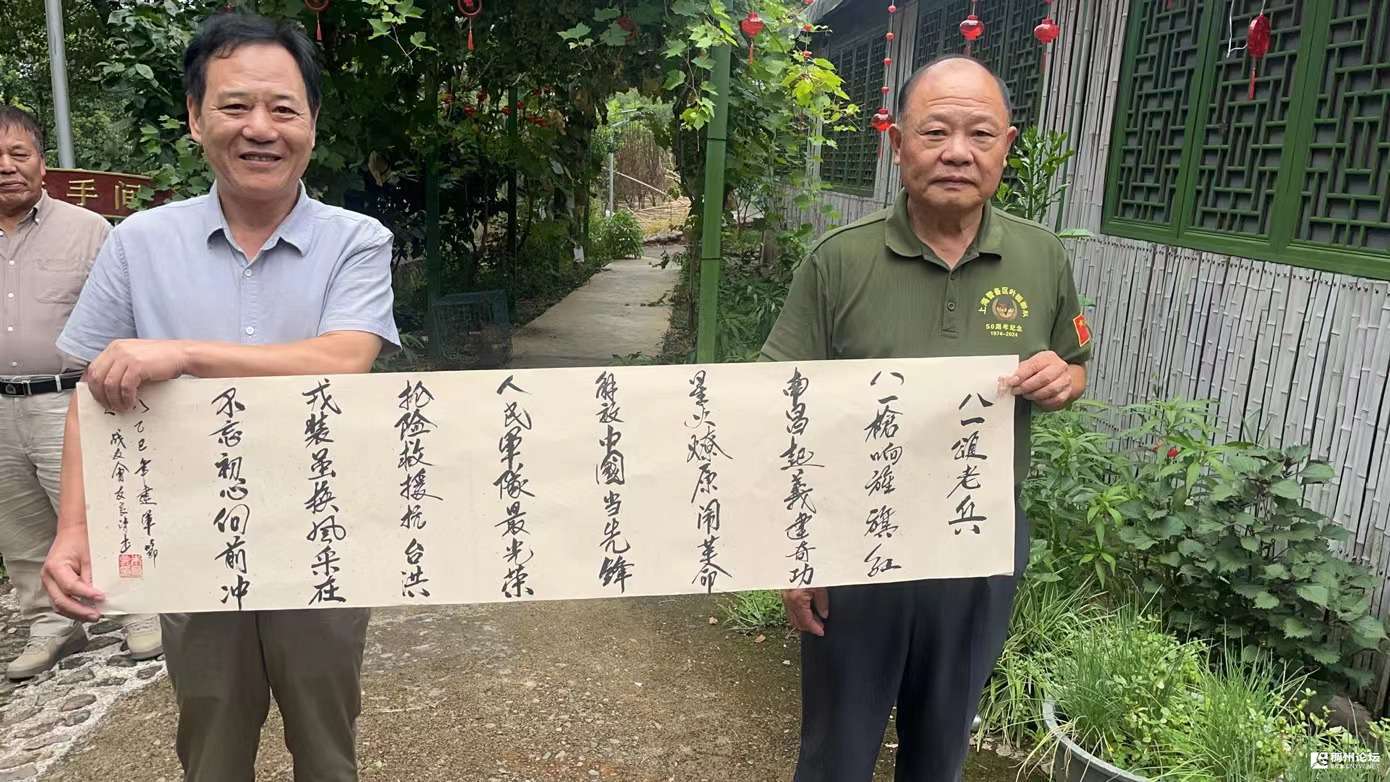 八一頌老兵
八一槍响旌旗紅
南昌起義建奇功
星火燎原闹革命
解放中國当先鋒
人民軍隊最光荣
抢险救援抗台洪
戎装虽换风采在
不忘初心向前冲
乙巳年建軍節
战友會友
手间
50周年纪念
1974-2024
稠州论坛